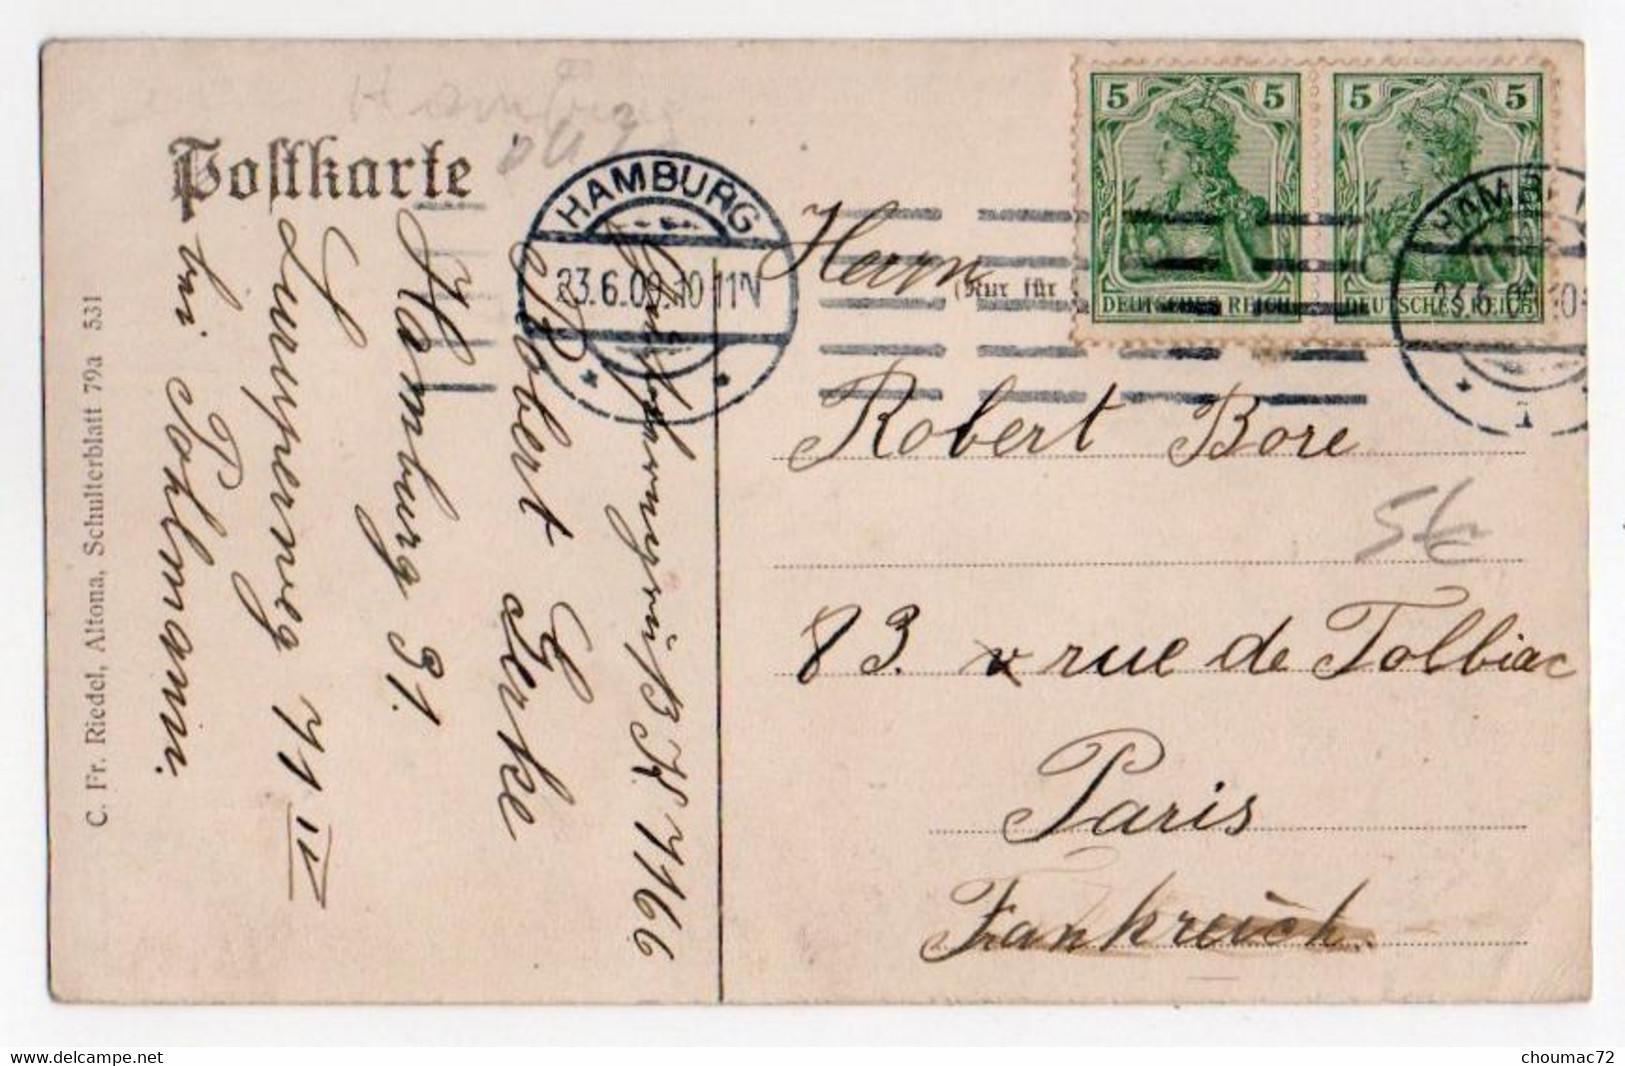 Postkarte
Hamburg
HAMBURG
23.6.09.10-11N
5 5
DEUTSCHES REICH
5 5
DEUTSCHES REICH
HAMBURG
23.6.09.10
1
(Nur für
Herrn
Robert Bore
83. rue de Tolbiac
Paris
Frankreich.
Robert Gerke
Hamburg 31.
71 IV
bei Pohlmann.
C. Fr. Riedel, Altona, Schulterblatt 79a 531
choumac72
www.delcampe.net